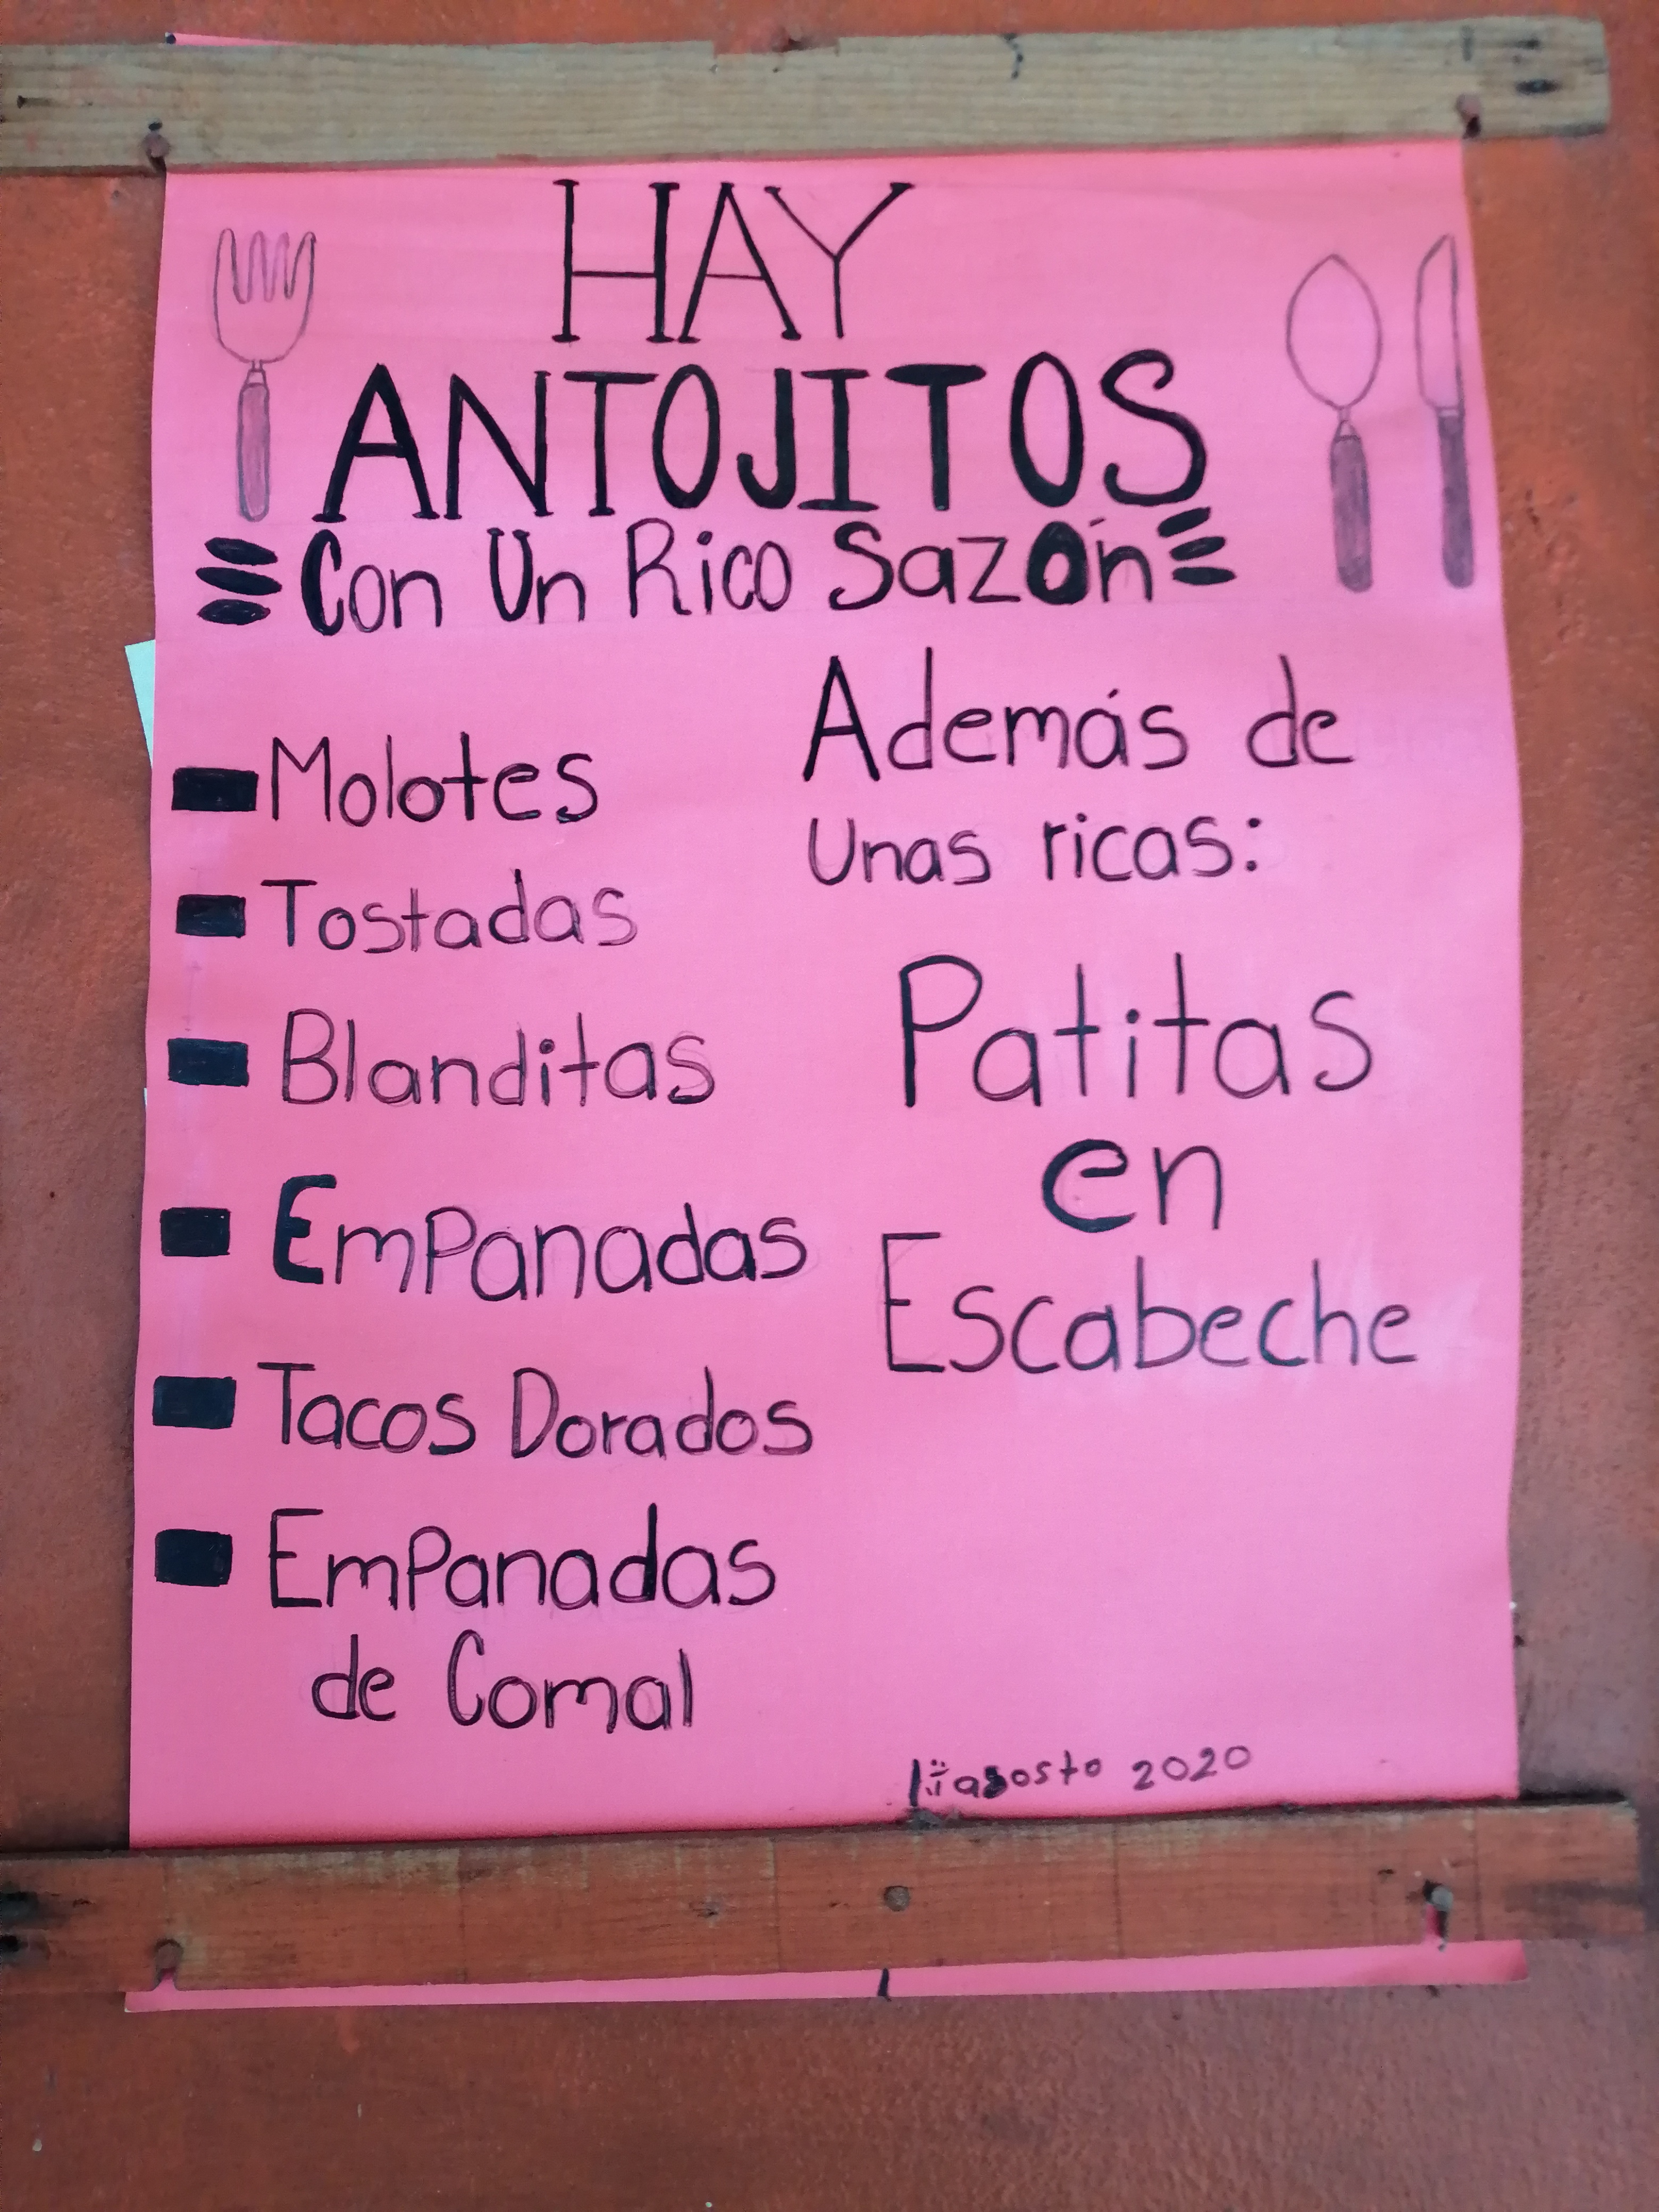 HAY
ANTOJITOS
Con Un Rico Sazón
Molotes
Tostadas
Blanditas
EmPanadas
Tacos Dorados
EmPanadas
de Comal
Además de
Unas ricas:
Patitas
en
Escabeche
agosto 2020